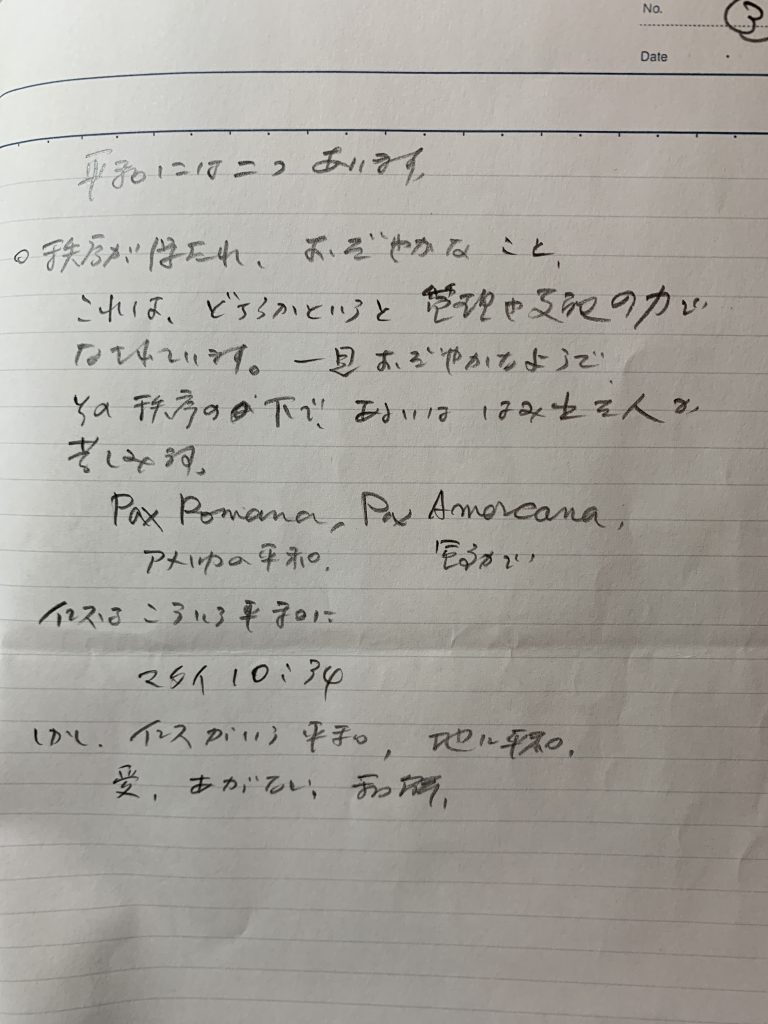 No. ③
Date
平和には二つあります。
○秩序が保たれ、おだやかなこと、
これは、どちらかというと管理や支配の力で
なされています。一見おだやかなようで
その秩序の下で、あるいははみ出る人が
苦しみます。
Pax Romana, Pax Amercana,
アメリカの平和.
イエスはこういう平和に
マタイ10:34
しかし、イエスがいう平和, 地に平和,
愛, あがない, 和解,